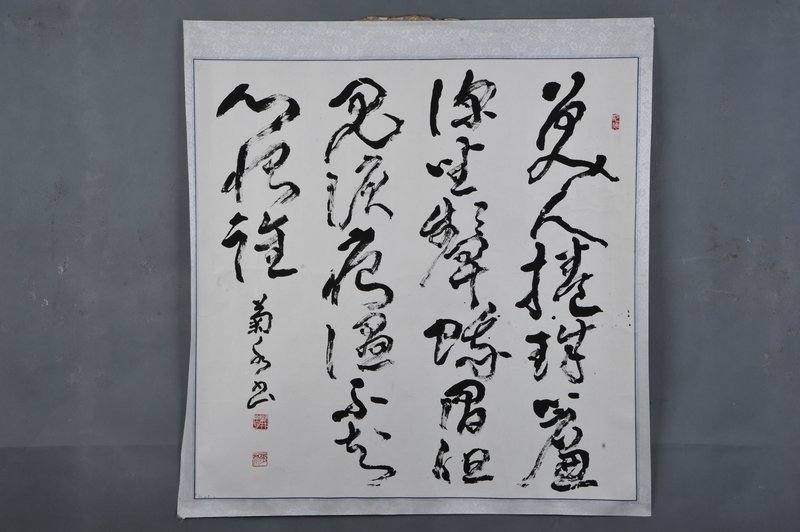 美人捲珠簾
深坐顰蛾眉但
見淚痕湿不知
心恨誰
菊
书